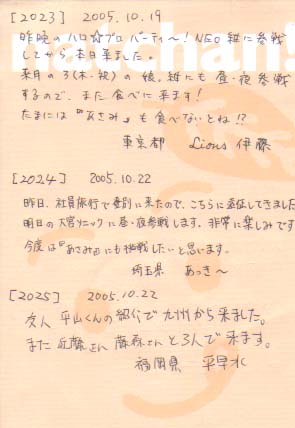 [2023] 2005.10.19
昨晩のハロ☆プロパーティ〜!NEO 雑に参戦
してから、本日来ました。
来月の3(木・祝)の 娘。雑にも 昼・夜 参戦
するので、また食べに来ます!
たまには『あさみ』も食べないとね!?
東京都 Lions 伊藤
[2024] 2005.10.22
昨日、社員旅行で登別に来たので、こちらに遠征してきました
明日の大宮ソニックに昼・夜参戦します。非常に楽しみです
今度は『あさみ』にも挑戦したいと思います。
埼玉県 あっき〜
[2025] 2005.10.22
友人 平山くんの紹介で九州から来ました。
また近藤さん 藤森さんと3人で来ます。
福岡県 平早水
chan!